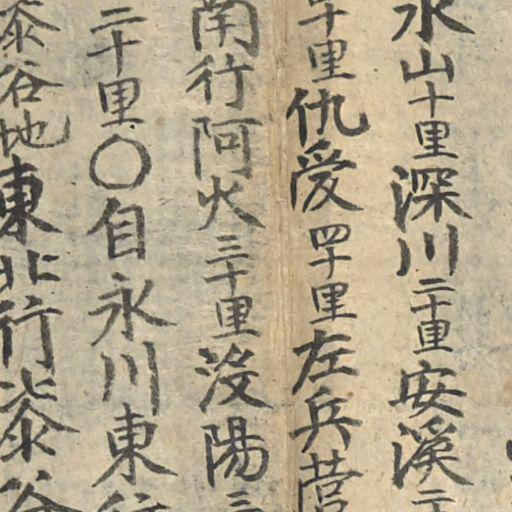 水山十里深川二十里安溪二
十里仇愛四十里左兵營
南行阿火三十里沒陽三
二十里〇自永川東行
泰谷地東北行泰谷